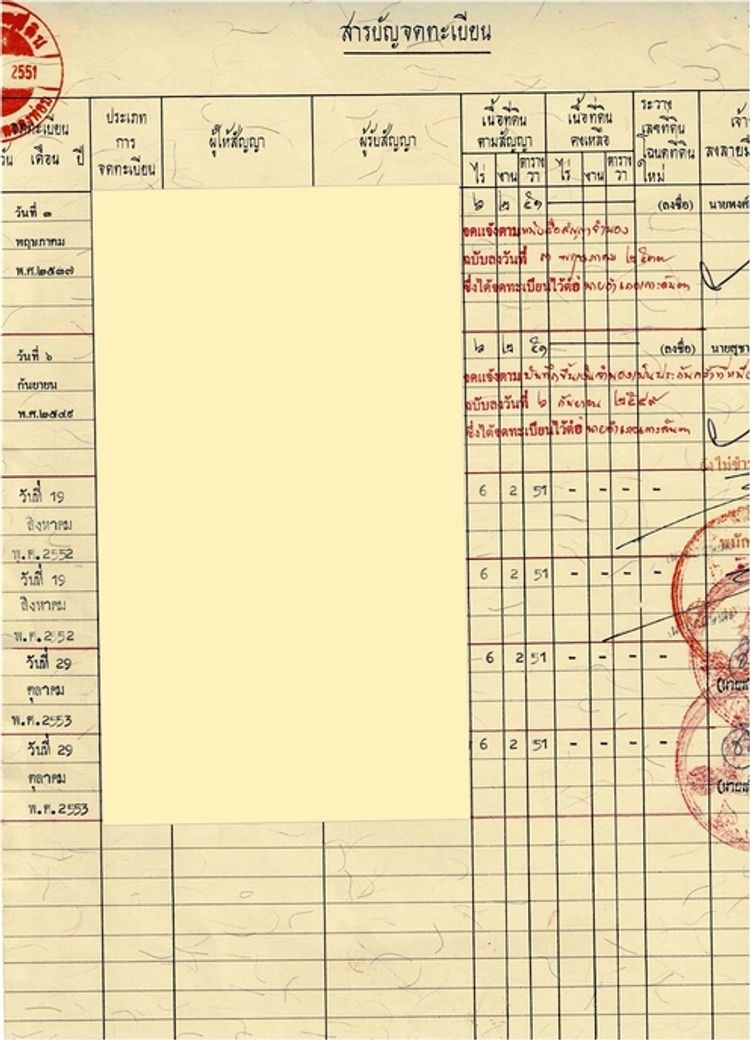 สารบัญจดทะเบียน
2551
จดทะเบียน
วัน เดือน ปี
ประเภท
การ
จดทะเบียน
ผู้ให้สัญญา
ผู้รับสัญญา
เนื้อที่ดิน
ตามสัญญา
ไร่ งาน ตาราง
วา
เนื้อที่ดิน
คงเหลือ
ไร่ งาน ตาราง
วา
ระวาง
เลขที่ดิน
โฉนดที่ดิน
ใหม่
วันที่ ๓
พฤษภาคม
พ.ศ.๒๕๓๗
๖ ๒ ๕๑ (ลงชื่อ) นายพงศ์
จดแจ้งตามหนังสือสัญญาจำนอง
ฉบับลงวันที่ ๓ พฤษภาคม ๒๕๓๗
ซึ่งได้จดทะเบียนไว้ต่อ
วันที่ ๖
กันยายน
พ.ศ.๒๕๔๙
๖ ๒ ๕๑ (ลงชื่อ) นายสุชา
จดแจ้งตามบันทึกขึ้นเงินจำนองเป็นประกัน
ฉบับลงวันที่ ๖ กันยายน ๒๕๔๙
ซึ่งได้จดทะเบียนไว้ต่อ
วันที่ 19
สิงหาคม
พ.ศ.2552
6 2 51 - - - -
วันที่ 19
สิงหาคม
พ.ศ.2552
6 2 51 - - - -
วันที่ 29
ตุลาคม
พ.ศ.2553
6 2 51 - - - -
วันที่ 29
ตุลาคม
พ.ศ.2553
6 2 51 - - - -